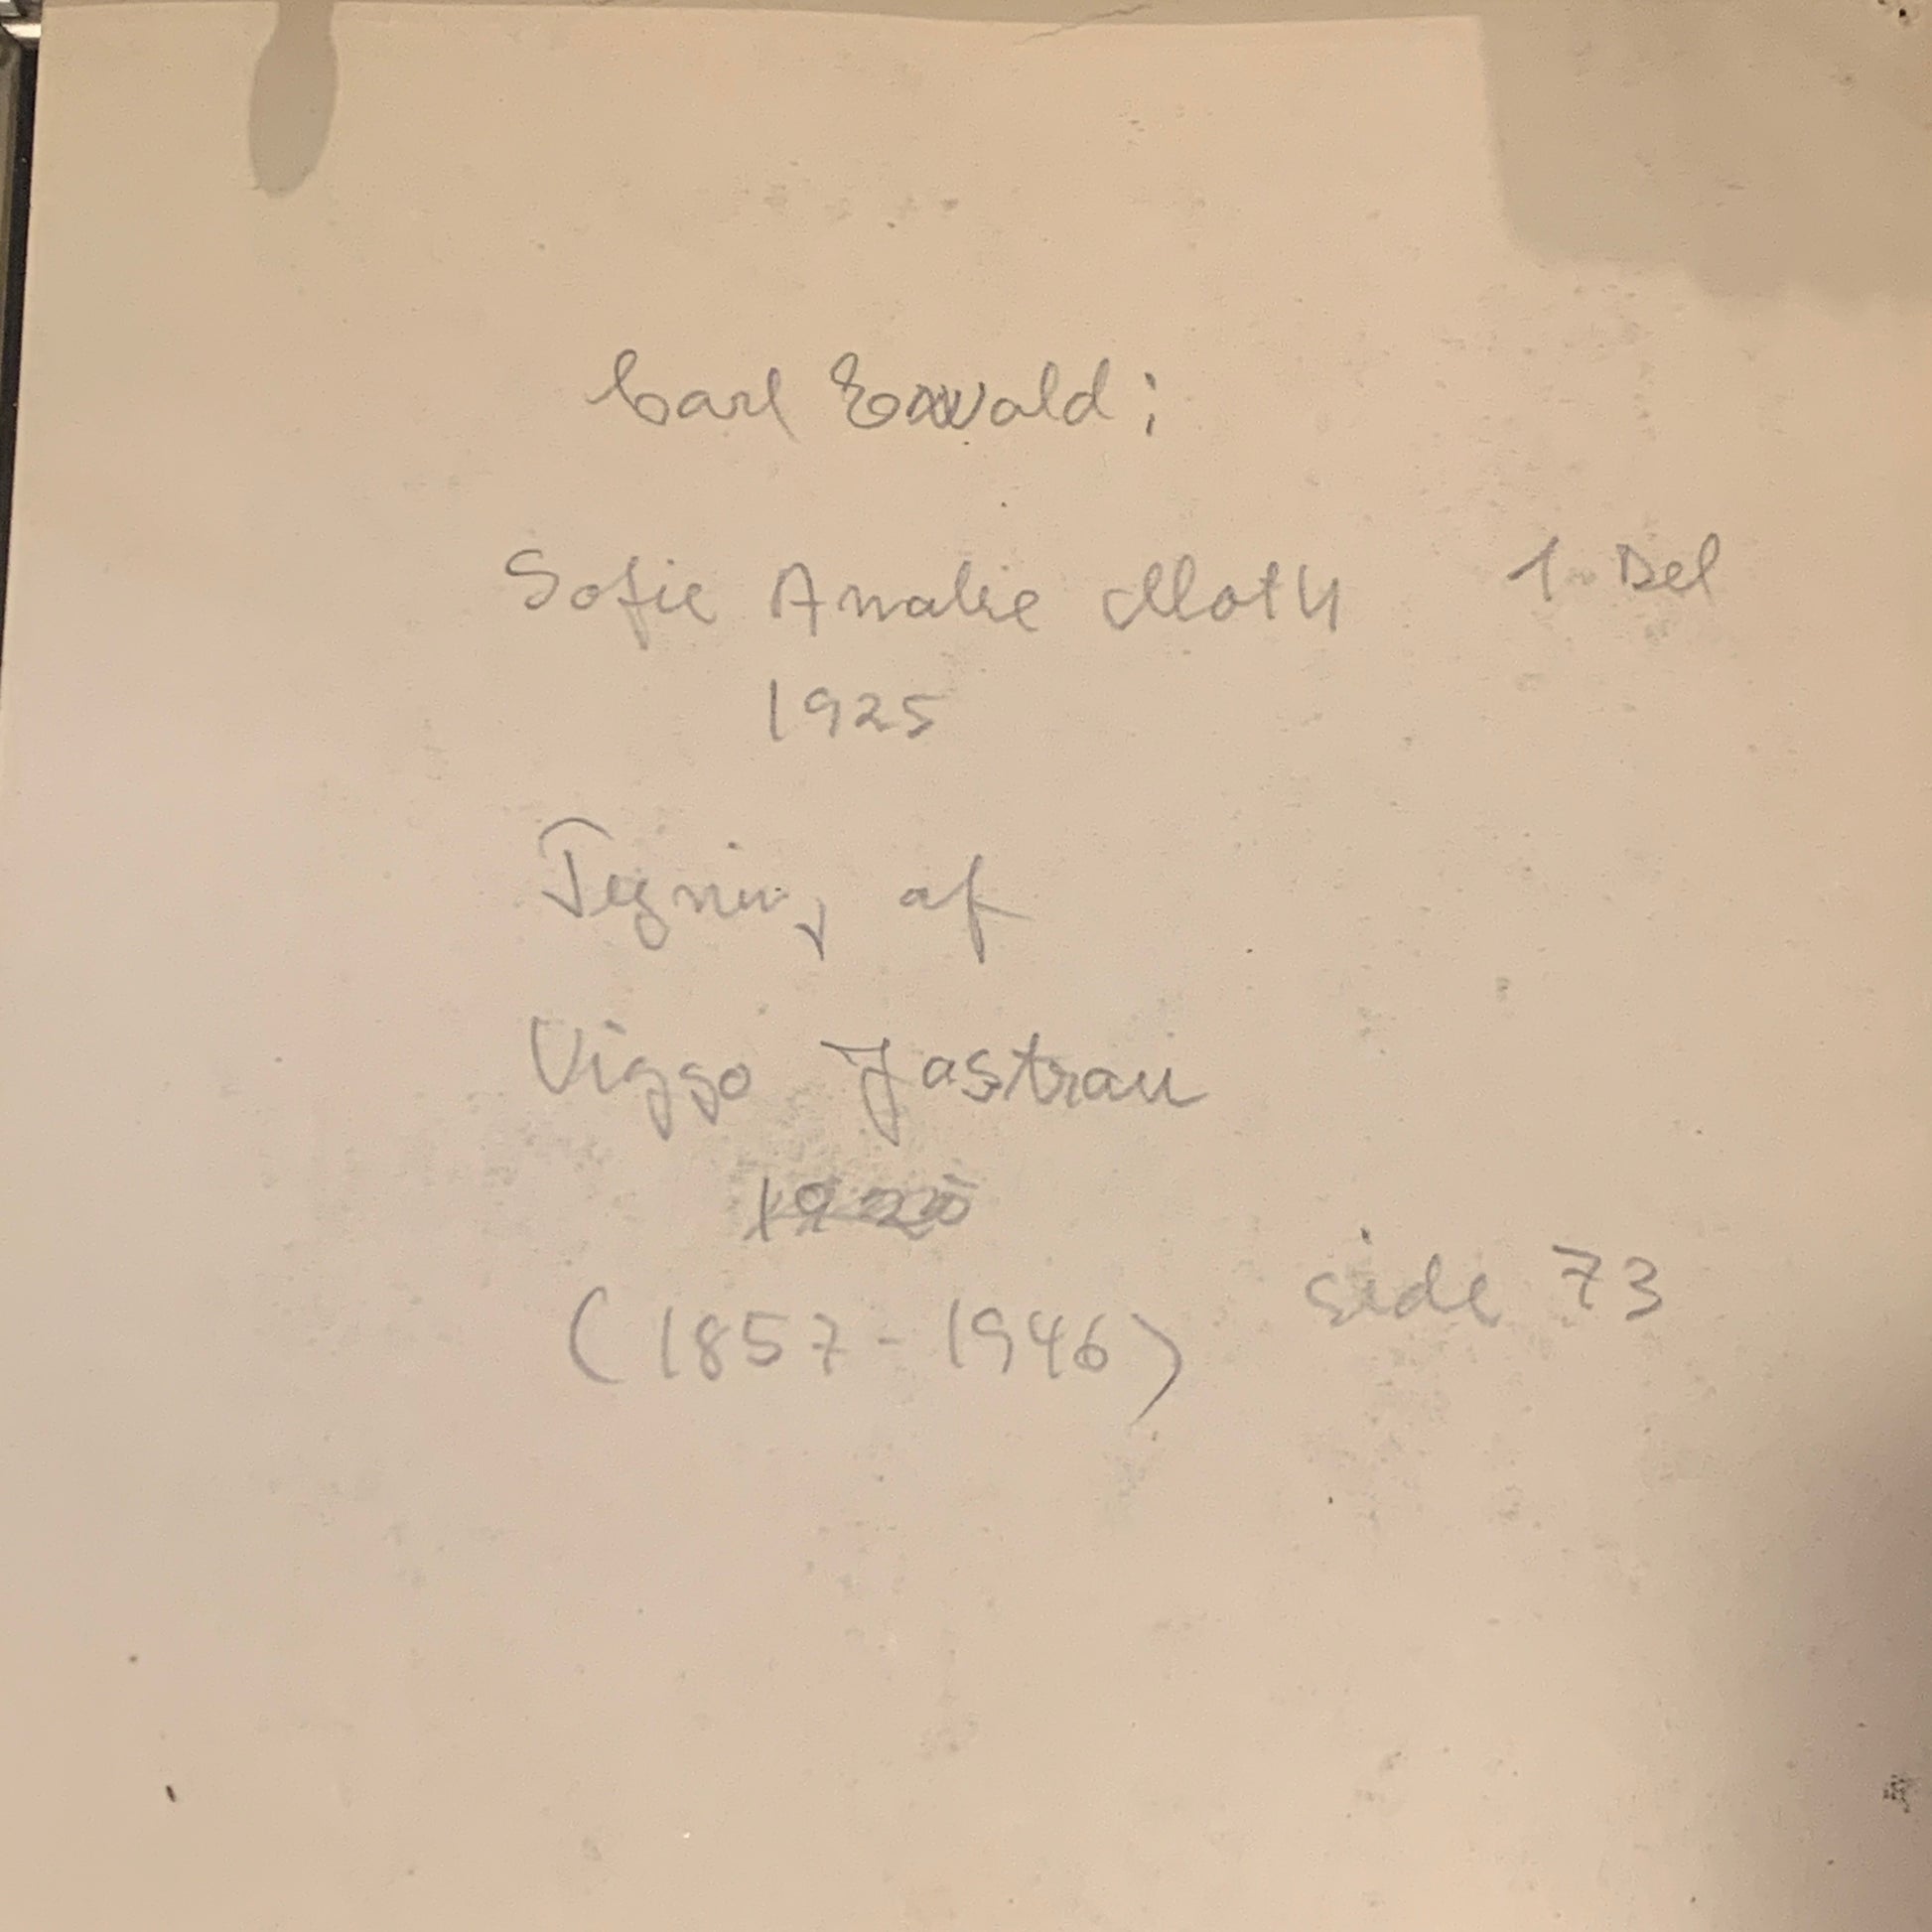 Carl Ewald:
Sofie Amalie Moth 1. Del
1925
Tegning af
Viggo Jastrau
(1857-1946) side 73